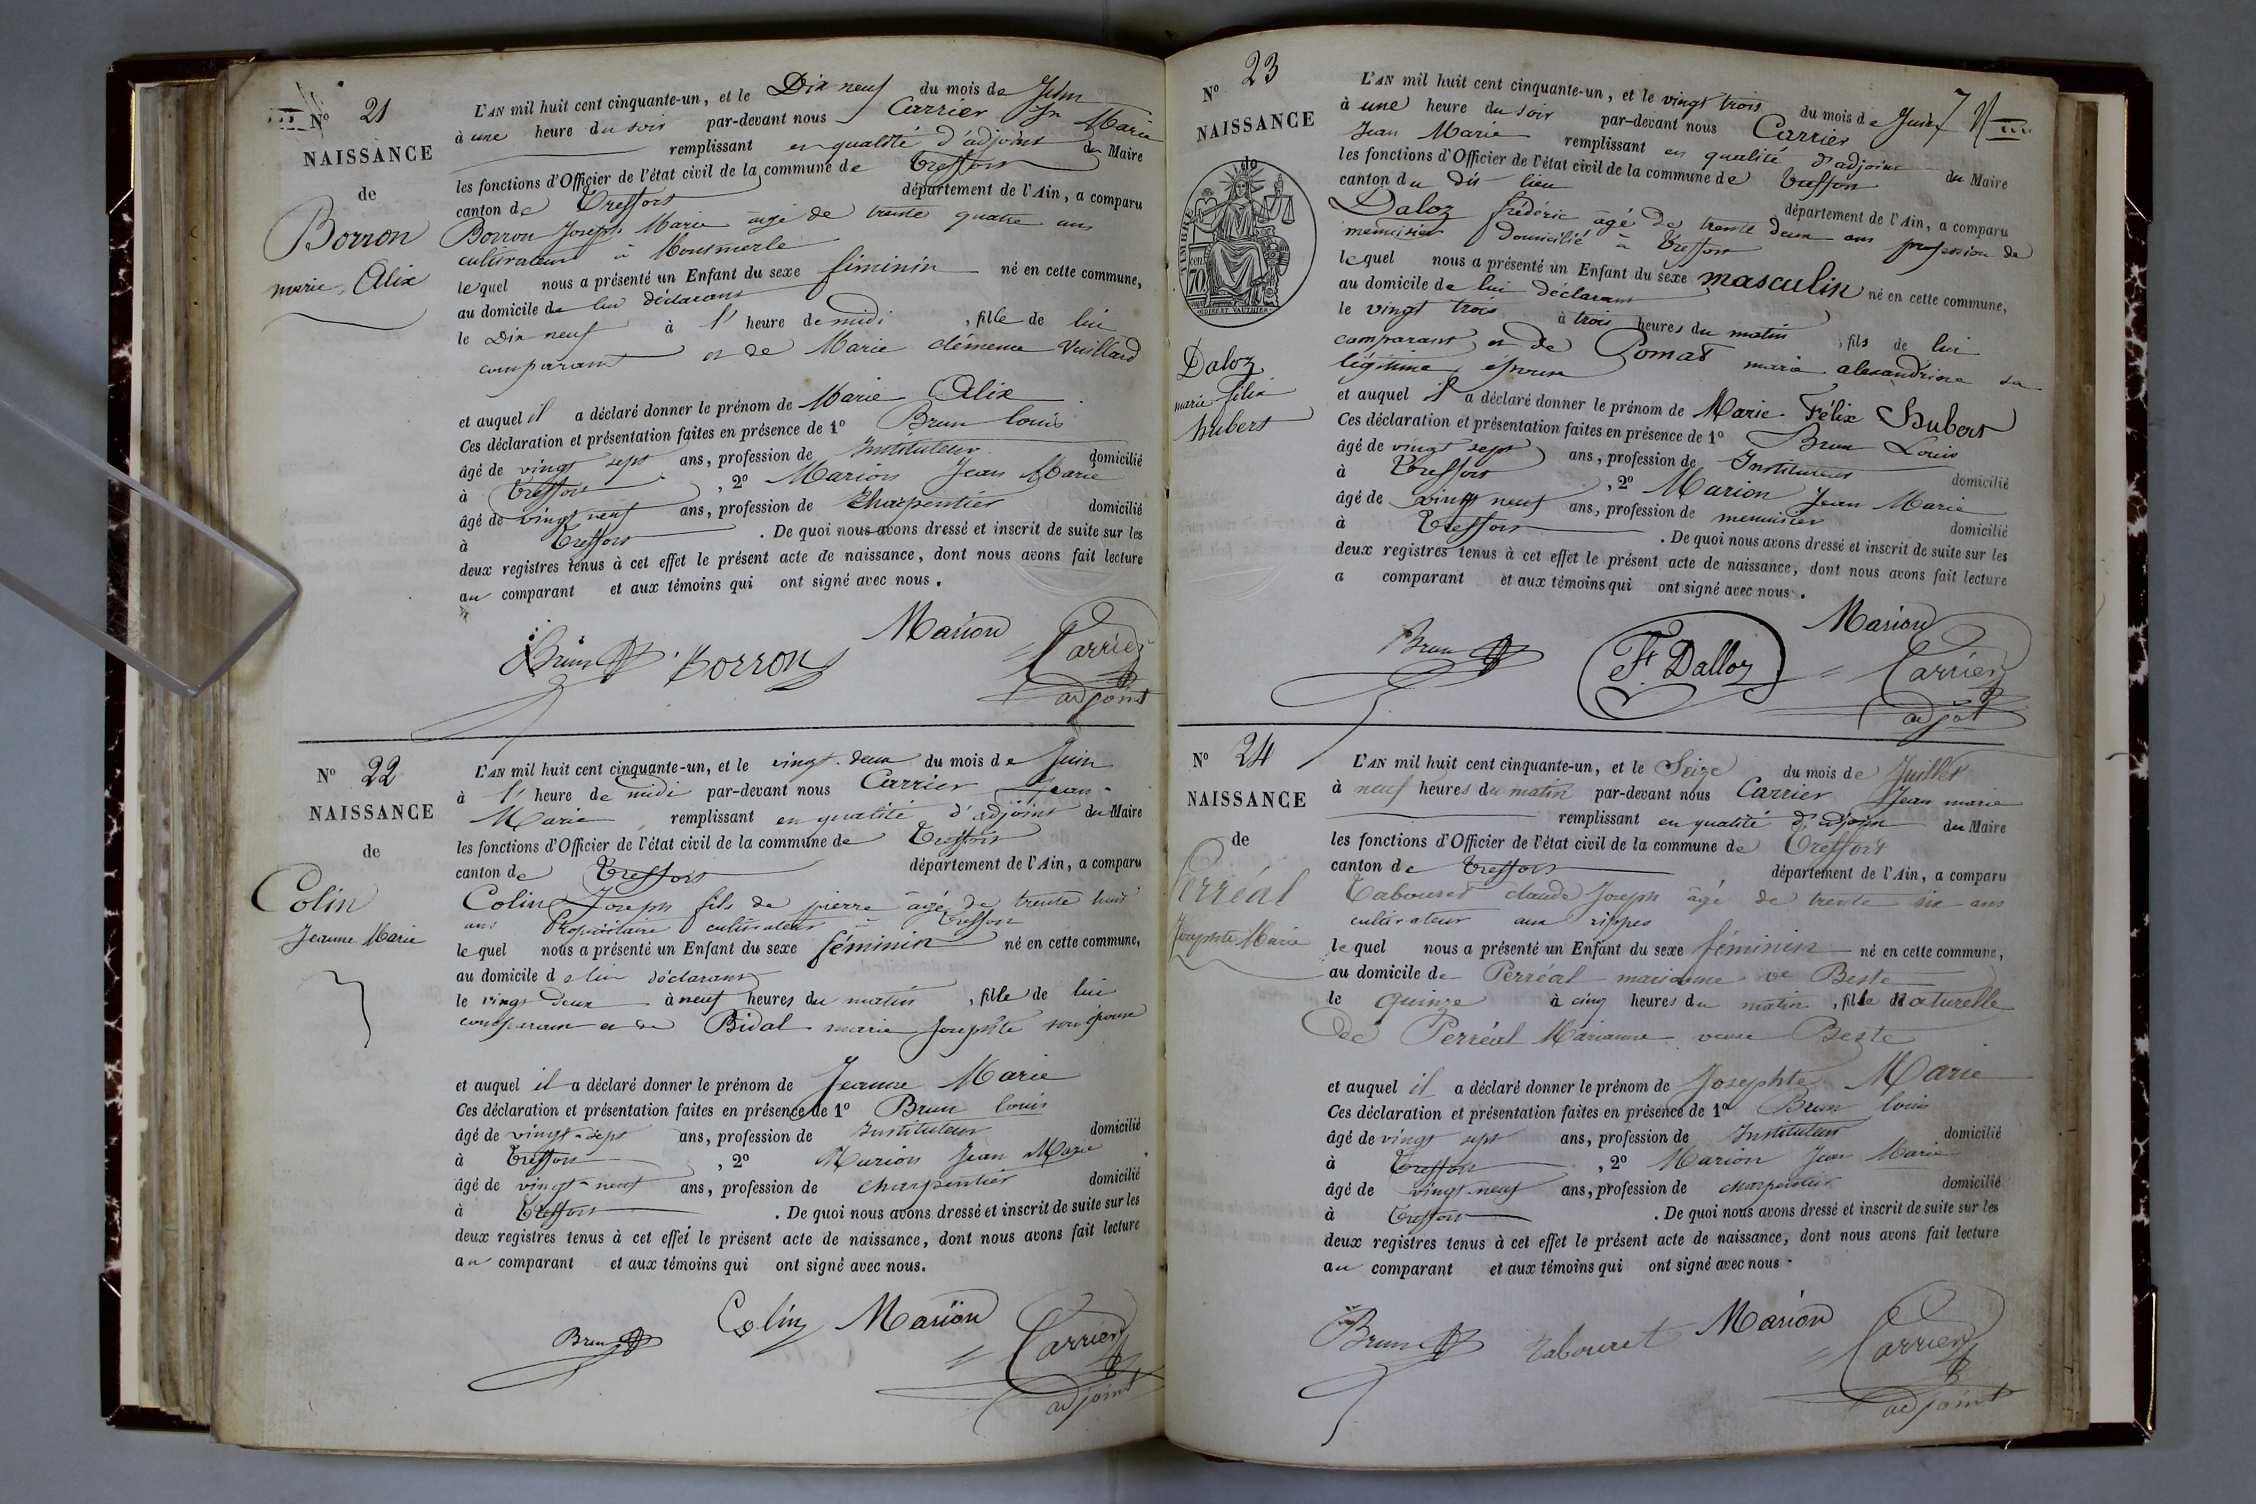 N° 21
NAISSANCE
de
Borron
marie Alix
L'AN mil huit cent cinquante-un, et le Dix neuf du mois de Juin
à une heure du soir par-devant nous Carrier Jn Marie
remplissant en qualité d'adjoint du Maire
les fonctions d'Officier de l'état civil de la commune de Treffort
canton de Treffort département de l'Ain, a comparu
Borron Joseph Marie âgé de trente quatre ans
cultivateur à Monsmerle
lequel nous a présenté un Enfant du sexe féminin né en cette commune,
au domicile de lui déclarant
le Dix neuf à l' heure de midi , fille de lui
comparant et de Marie clémence Vuillard
et auquel il a déclaré donner le prénom de Marie Alix
Ces déclaration et présentation faites en présence de 1° Brun louis
âgé de vingt sept ans, profession de Instituteur domicilié
à Treffort , 2° Marion Jean Marie
âgé de vingt neuf ans, profession de Charpentier domicilié
à Treffort . De quoi nous avons dressé et inscrit de suite sur les
deux registres tenus à cet effet le présent acte de naissance, dont nous avons fait lecture
au comparant et aux témoins qui ont signé avec nous.
Marion
Brun Borron Carrier
adjoint
N° 22
NAISSANCE
de
Colin
Jeanne Marie
L'AN mil huit cent cinquante-un, et le vingt-deux du mois de Juin
à l' heure de midi par-devant nous Carrier Jean-
Marie remplissant en qualité d'adjoint du Maire
les fonctions d'Officier de l'état civil de la commune de Treffort
canton de Treffort département de l'Ain, a comparu
Colin Joseph fils de pierre âgé de trente huit
ans Propriétaire cultivateur à Treffort
lequel nous a présenté un Enfant du sexe féminin né en cette commune,
au domicile de lui déclarant
le vingt deux à neuf heures du matin , fille de lui
comparant et de Bidal marie Josephte son épouse
et auquel il a déclaré donner le prénom de Jeanne Marie
Ces déclaration et présentation faites en présence de 1° Brun louis
âgé de vingt-sept ans, profession de Instituteur domicilié
à Treffort , 2° Marion Jean Marie
âgé de vingt-neuf ans, profession de charpentier domicilié
à Treffort . De quoi nous avons dressé et inscrit de suite sur les
deux registres tenus à cet effet le présent acte de naissance, dont nous avons fait lecture
au comparant et aux témoins qui ont signé avec nous.
Colin Marion
Brun Carrier
adjoint
N° 23
NAISSANCE
de
TIMBRE
70
Daloz
marie félix
hubert
L'AN mil huit cent cinquante-un, et le vingt trois du mois de Juin
à une heure du soir par-devant nous Carrier
Jean Marie remplissant en qualité d'adjoint du Maire
les fonctions d'Officier de l'état civil de la commune de Treffort
canton du dit lieu département de l'Ain, a comparu
Daloz frédéric âgé de trente deux ans profession de
menuisier domicilié à Treffort
lequel nous a présenté un Enfant du sexe masculin né en cette commune,
au domicile de lui déclarant
le vingt trois à trois heures du matin , fils de lui
comparant et de Pomat marie alexandrine sa
légitime épouse
et auquel il a déclaré donner le prénom de Marie Félix Hubert
Ces déclaration et présentation faites en présence de 1° Brun Louis
âgé de vingt sept ans, profession de Instituteur domicilié
à Treffort , 2° Marion Jean Marie
âgé de vingt neuf ans, profession de menuisier domicilié
à Treffort . De quoi nous avons dressé et inscrit de suite sur les
deux registres tenus à cet effet le présent acte de naissance, dont nous avons fait lecture
a comparant et aux témoins qui ont signé avec nous.
Marion
Brun F. Dalloz Carrier
adjot
N° 24
NAISSANCE
de
Perréal
Josephte Marie
L'AN mil huit cent cinquante-un, et le Seize du mois de Juillet
à neuf heures du matin par-devant nous Carrier Jean marie
remplissant en qualité d'adjoin du Maire
les fonctions d'Officier de l'état civil de la commune de Treffort
canton de Treffort département de l'Ain, a comparu
Tabouret claude Joseph âgé de trente six ans
cultivateur aux rippes
lequel nous a présenté un Enfant du sexe féminin né en cette commune,
au domicile de Perréal marianne ve Beste
le quinze à cinq heures du matin , fille naturelle
de Perréal Marianne veuve Beste
et auquel il a déclaré donner le prénom de Josephte Marie
Ces déclaration et présentation faites en présence de 1° Brun louis
âgé de vingt sept ans, profession de Instituteur domicilié
à Treffort , 2° Marion Jean Marie
âgé de vingt-neuf ans, profession de charpentier domicilié
à Treffort . De quoi nous avons dressé et inscrit de suite sur les
deux registres tenus à cet effet le présent acte de naissance, dont nous avons fait lecture
au comparant et aux témoins qui ont signé avec nous.
Brun Tabouret Marion Carrier
adjoint